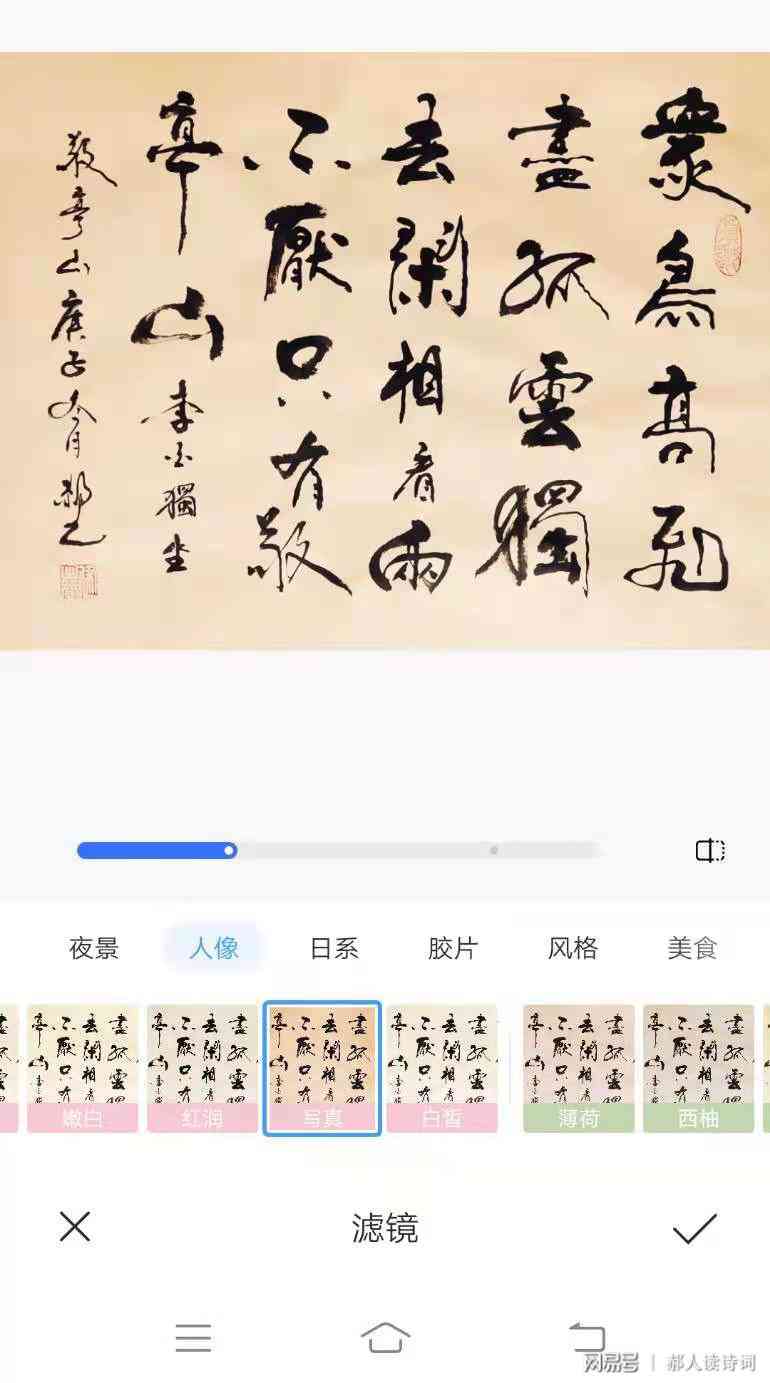 衆鳥高飛
盡孤雲獨
去閑相看兩
不厭只有敬
亭山 李白獨坐
敬亭山 庚子
夜景 人像 日系 胶片 风格 美食
嫩白 红润 写真 白皙 薄荷 西柚
滤镜
网易号 | 郝人读诗词